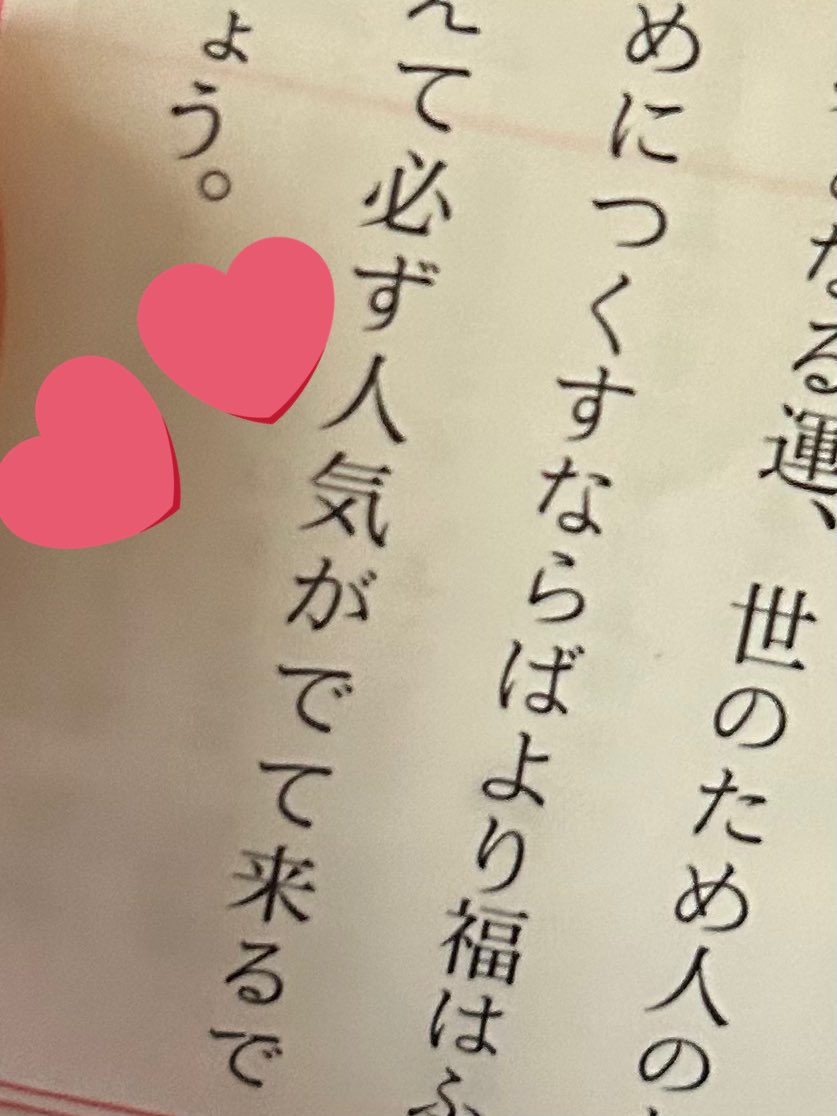 なる運、世のため人の
めにつくすならばより福はふ
えて必ず人気がでて来るで
ょう。